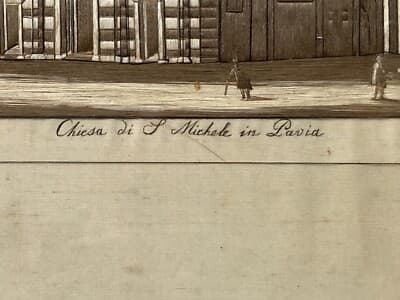 Chiesa di S Michele in Pavia